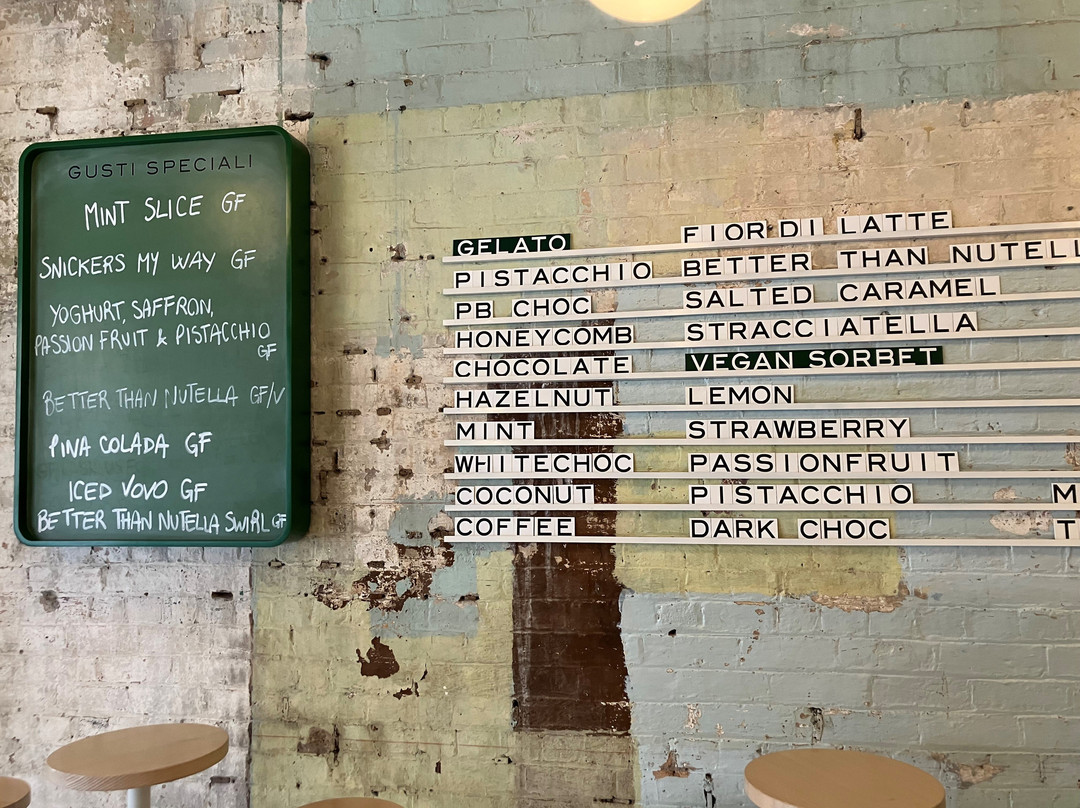 GUSTI SPECIALI
MINT SLICE GF
SNICKERS MY WAY GF
YOGHURT, SAFFRON,
PASSION FRUIT & PISTACCHIO
GF
BETTER THAN NUTELLA GF/V
PINA COLADA GF
ICED VOVO GF
BETTER THAN NUTELLA SWIRL GF
GELATO
PISTACCHIO
PB CHOC
HONEYCOMB
CHOCOLATE
HAZELNUT
MINT
WHITECHOC
COCONUT
COFFEE
FIOR DI LATTE
BETTER THAN NUTELL
SALTED CARAMEL
STRACCIATELLA
VEGAN SORBET
LEMON
STRAWBERRY
PASSIONFRUIT
PISTACCHIO
DARK CHOC
M
T